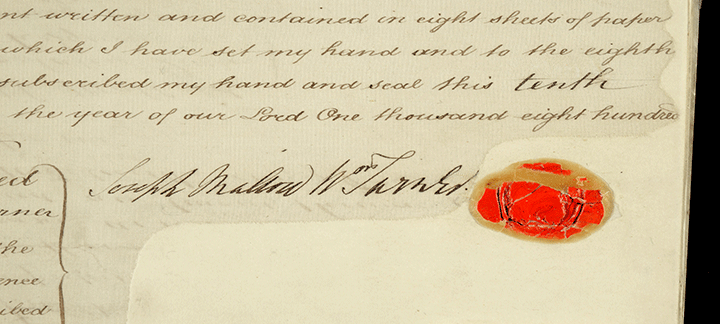 nt written and contained in eight sheets of paper
which I have set my hand and to the eighth
subscribed my hand and seal this tenth
the year of our Lord One thousand eight hundred
Joseph Mallord Wm Turner.
ed
rner
the
ence
ribed